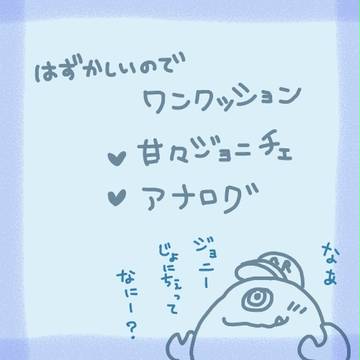 はずかしいので
ワンクッション
♥ 甘々ジョニチェ
♥ アナログ
なあ
ジョニー
じょにちぇって
なにー?